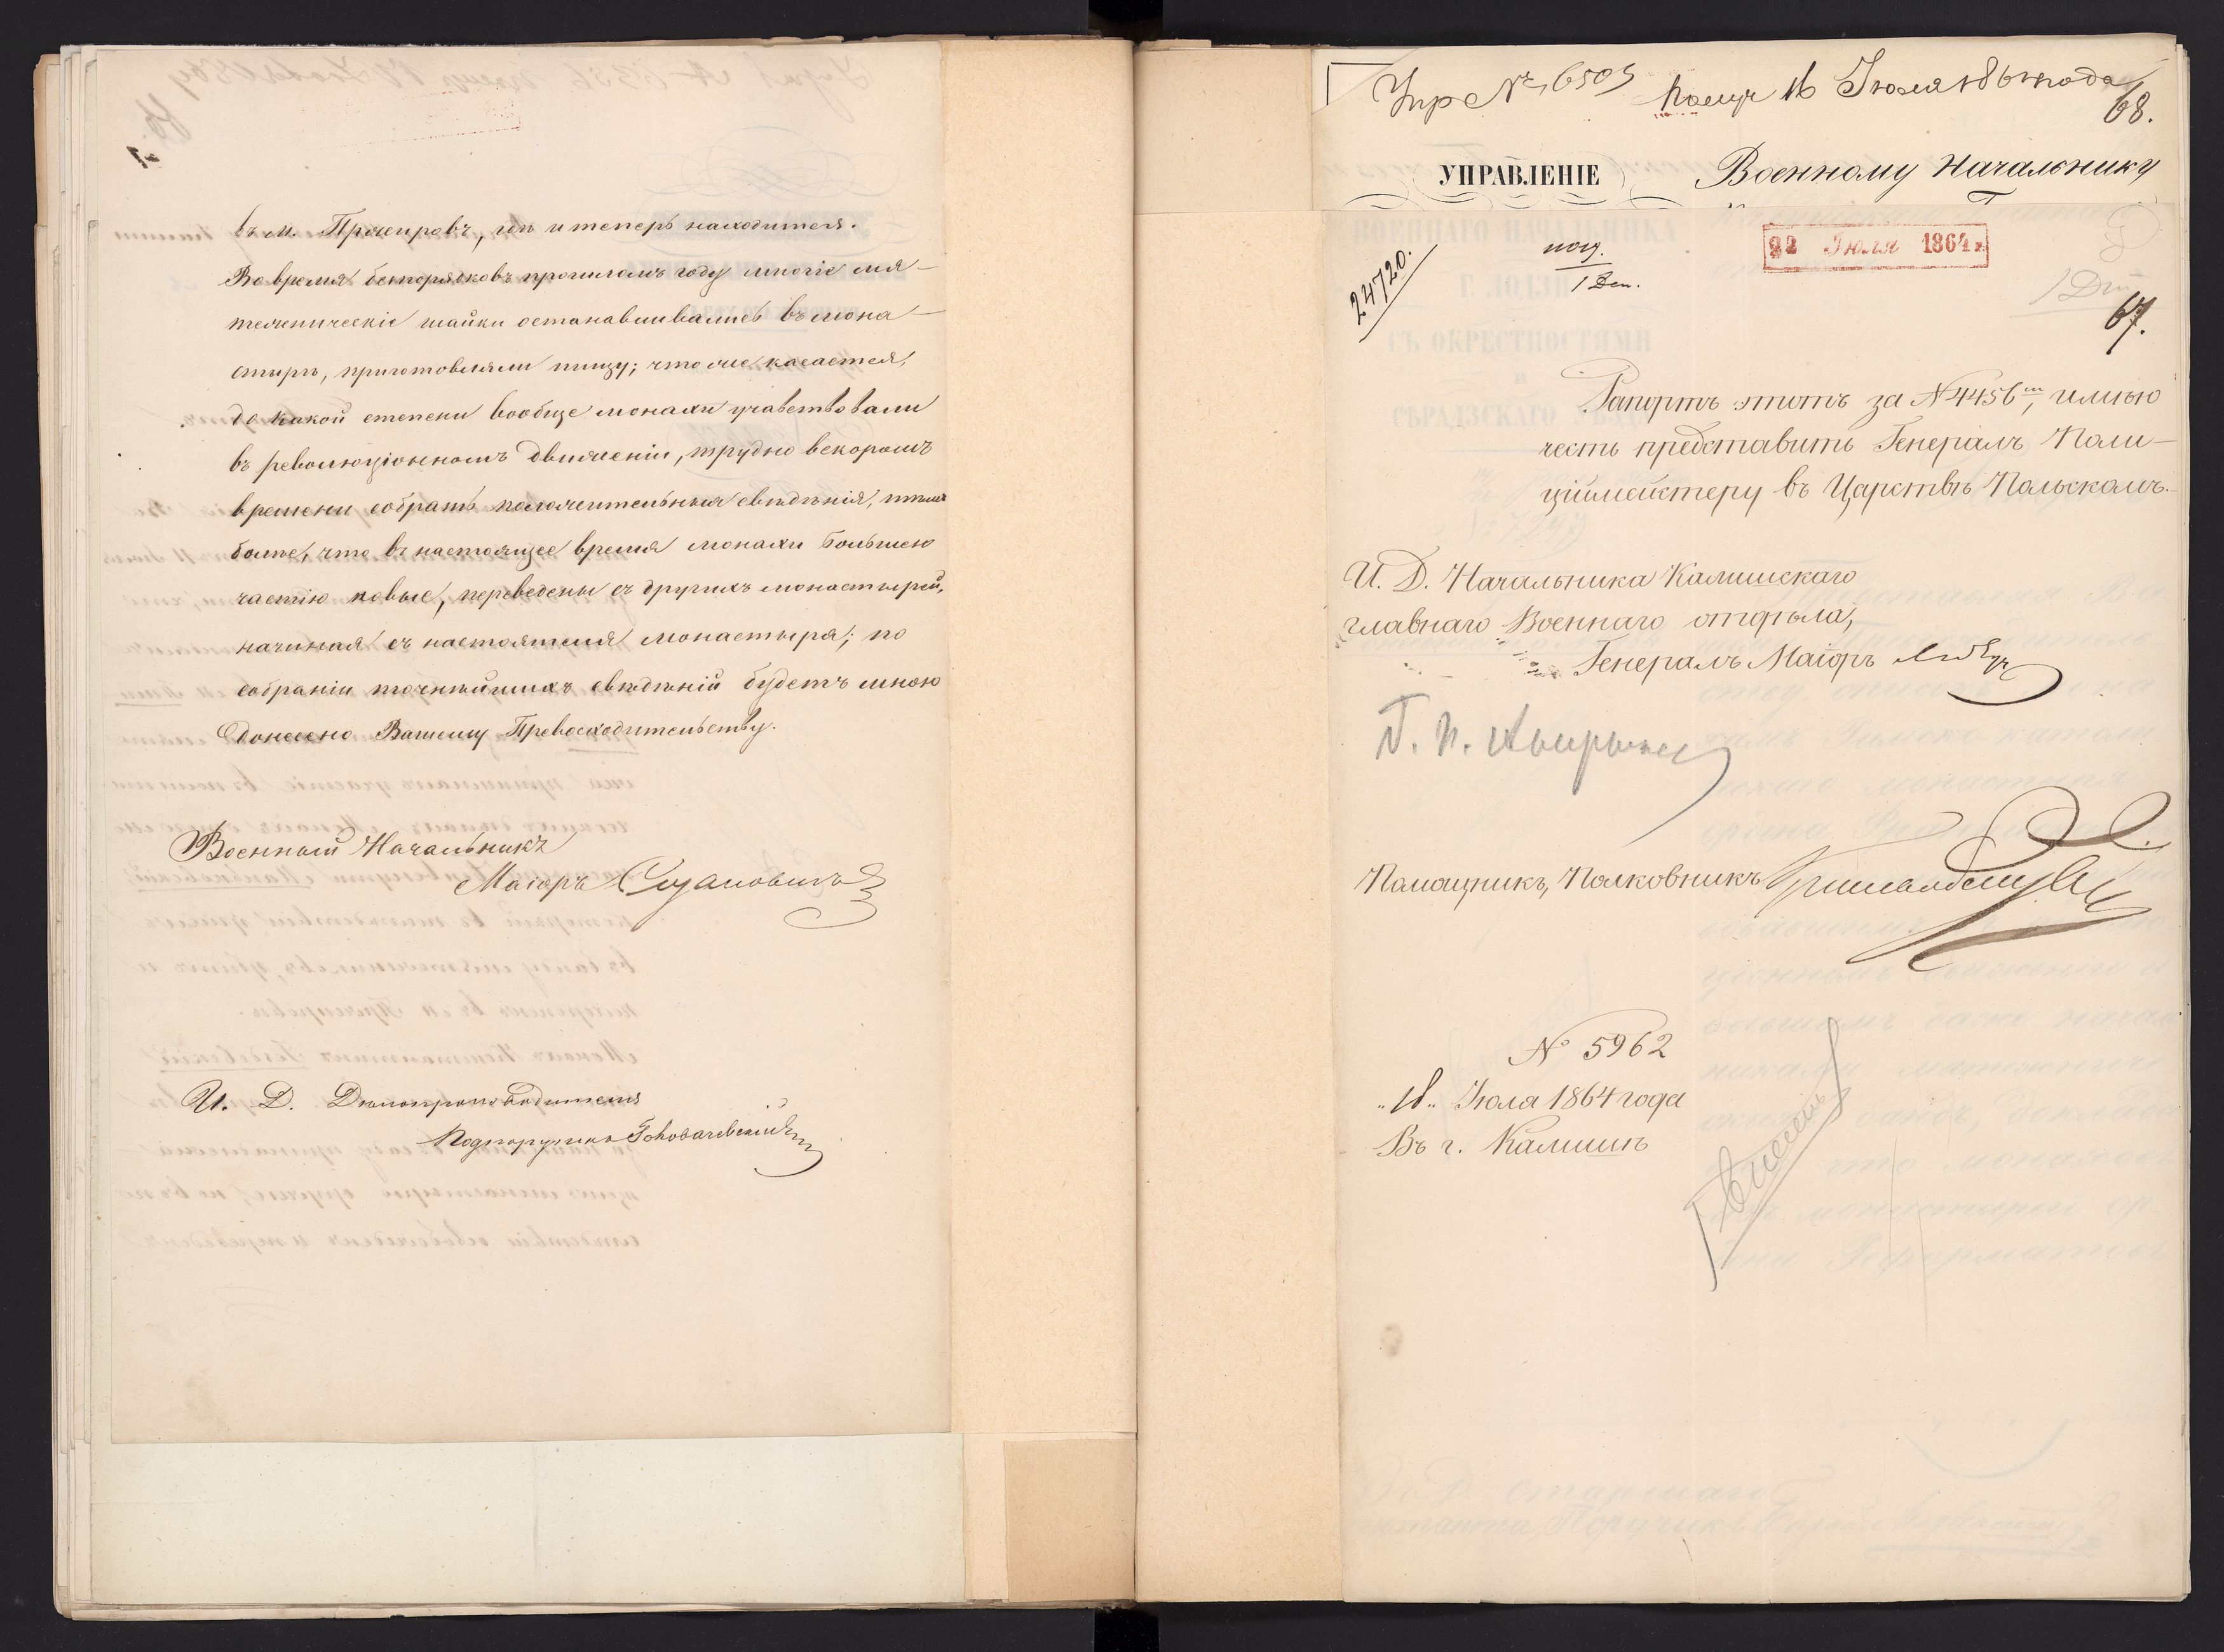 въ м. Пржировъ, гдѣ и теперь находится.
Во время безпорядковъ прошломъ году многіе мя-
тежническіе шайки останавливались въ мона-
стырѣ, приготовляли пищу; что же касается,
до какой степени вообще монахи учавствовали
въ революціонномъ движеніи, трудно вскоромъ
времени собрать положительныя свѣдѣнія, тѣмъ
болѣе, что въ настоящее время монахи большею
частію новые, переведены съ другихъ монастырей,
начиная съ настоятеля монастыря; по
собраніи точнѣйшихъ свѣдѣній будетъ мною
донесено Вашему Превосходительству.
Военный Начальникъ
Маіоръ
И. Д. Дѣлопроизводителя
Подпоручикъ
Упр № 6505 Получ 16 Іюля 1864 года
68.
УПРАВЛЕНІЕ
Военному Начальнику
22 Іюля 1864 г.
24720.
1 Деп.
67.
Рапортъ этотъ за № 4456, имѣю
честь представить Генералъ Поли-
ціймейстеру въ Царствѣ Польскомъ.
И. Д. Начальника Калишскаго
главнаго Военнаго отдѣла,
Генералъ Маіоръ
Помощникъ, Полковникъ
№ 5962
Іюля 1864 года
Въ г. Калишѣ